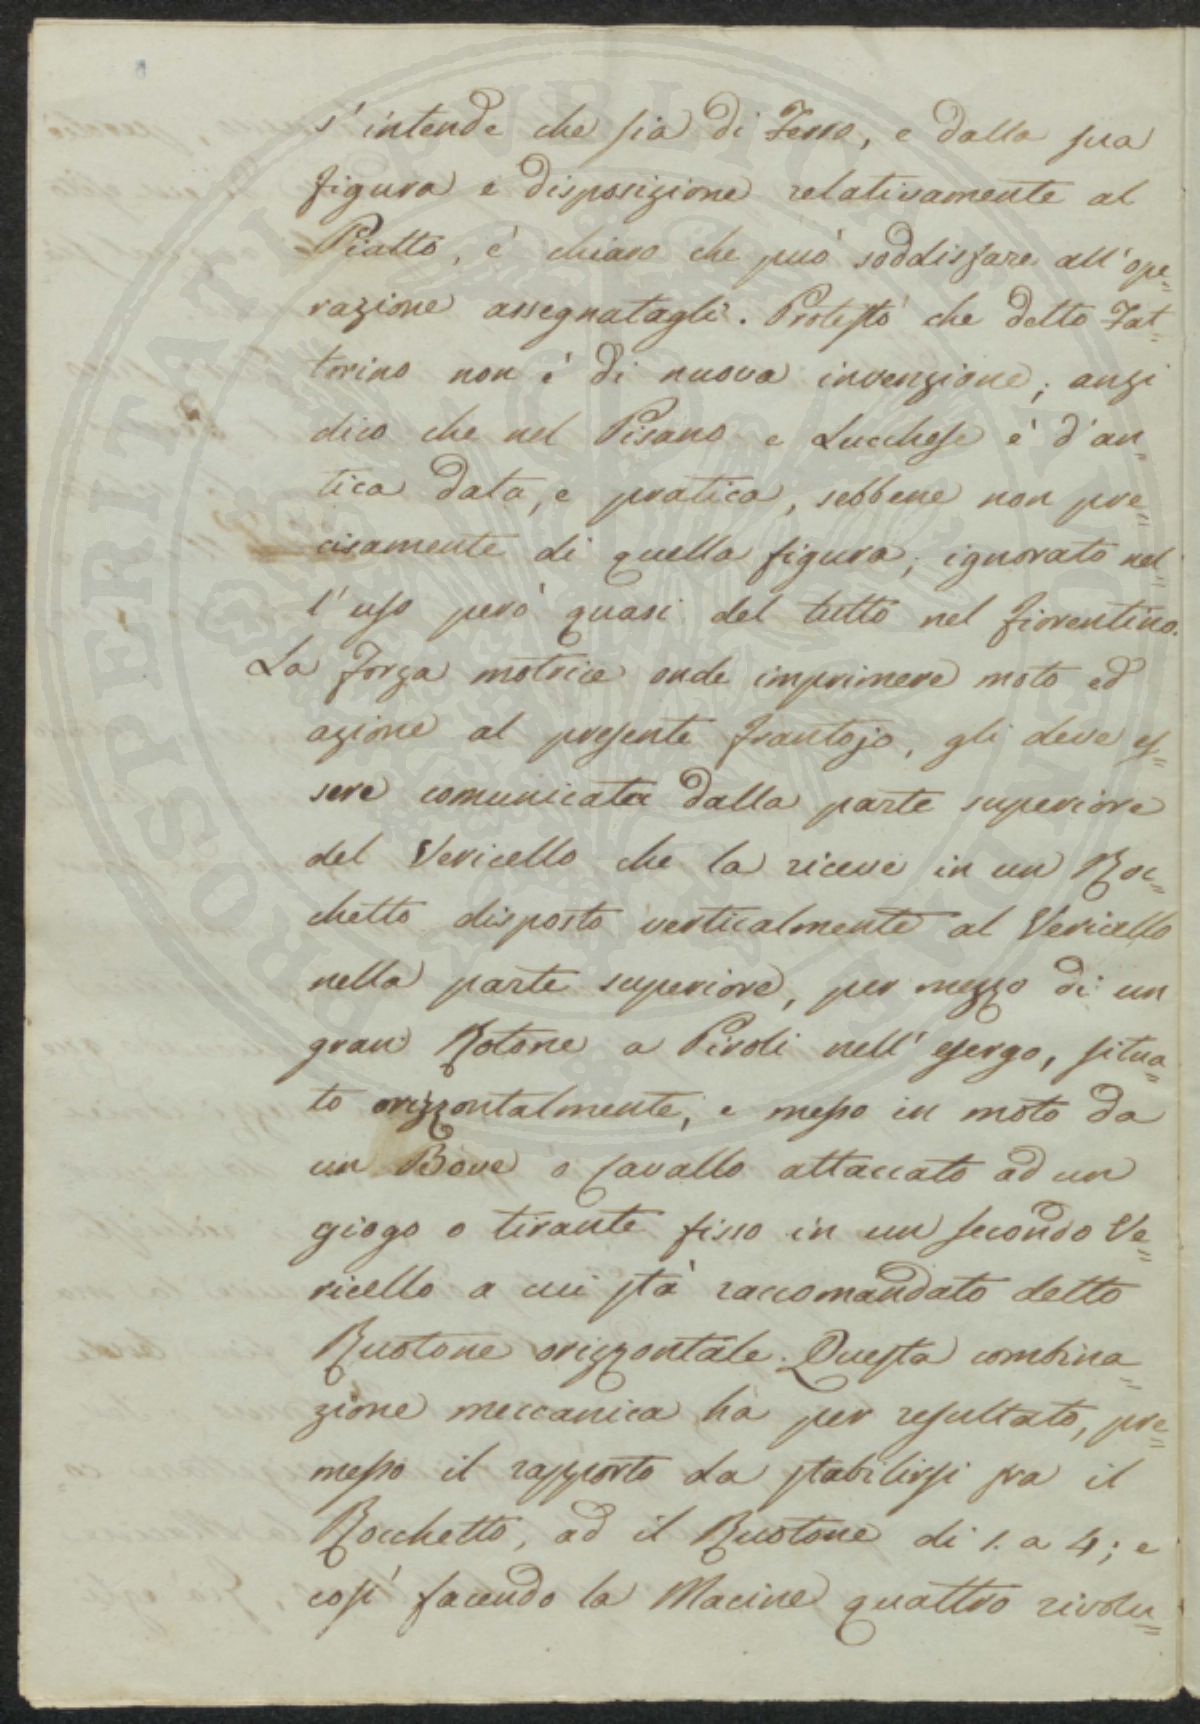 s'intende che sia di Ferro, e dalla sua
figura e disposizione relativamente al
Piatto, è chiaro che può soddisfare all'ope=
razione assegnatagli. Protesto che detto Fat=
torino non è di nuova invenzione; anzi
dico che nel Pisano e Lucchese è d'an=
tica data, e pratica, sebbene non pre=
cisamente di quella figura; ignorato nel=
l'uso però quasi del tutto nel fiorentino.
La forza motrice onde imprimere moto ed
azione al presente frantojo, gli deve es=
sere comunicata dalla parte superiore
del Vericello che la riceve in un Roc=
chetto disposto verticalmente al Vericello
nella parte superiore, per mezzo di un
gran Rotone a Piroli nell'esergo, situa=
to orizzontalmente, e messo in moto da
un Bove o Cavallo attaccato ad un
giogo o tirante fisso in un secondo Ve=
ricello a cui stà raccomandato detto
Ruotone orizzontale. Questa combina=
zione meccanica ha per resultato, pre=
messo il rapporto da stabilirsi fra il
Rocchetto, ad il Ruotone di 1. a 4; e
così facendo la Macine quattro rivolu=
PROSPERITATI PVBLICAE AVGENDAE